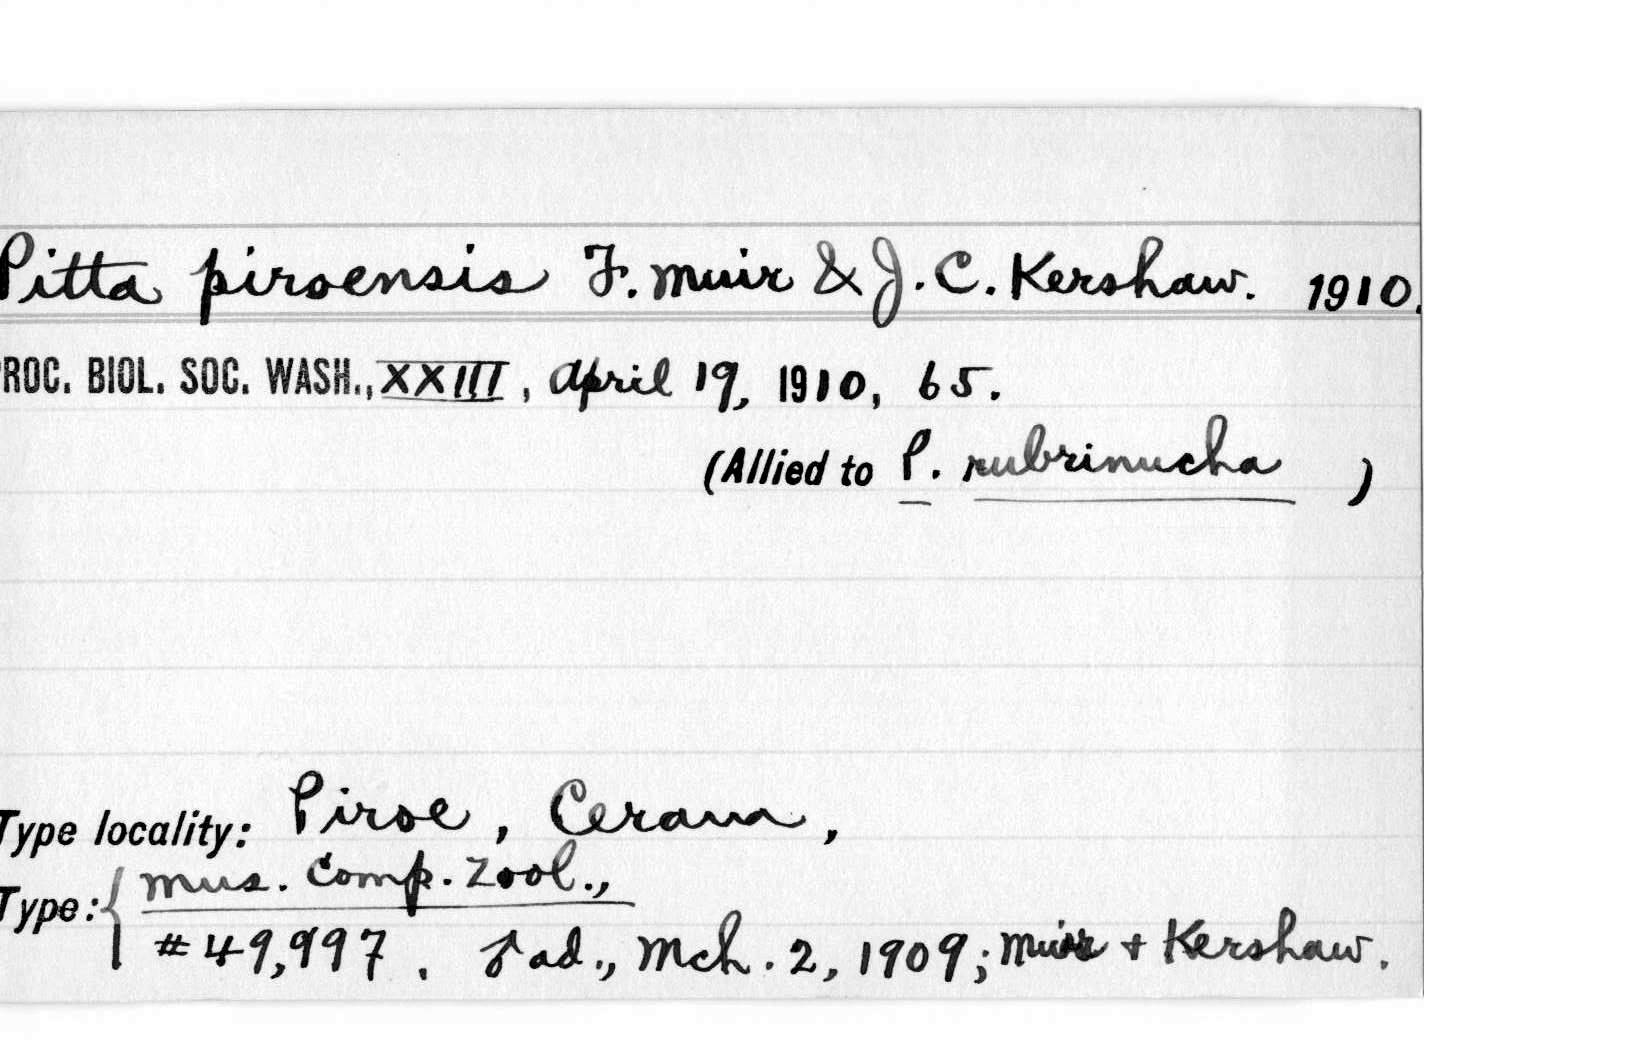 Pitta piroensis F. Muir & J. C. Kershaw. 1910.
PROC. BIOL. SOC. WASH., XXIII, April 19, 1910, 65.
(Allied to P. rubrinucha )
Type locality: Piroe, Ceram,
Type: { Mus. Comp. Zool.,
#49,997. ♂ ad., Mch. 2, 1909; Muir + Kershaw.